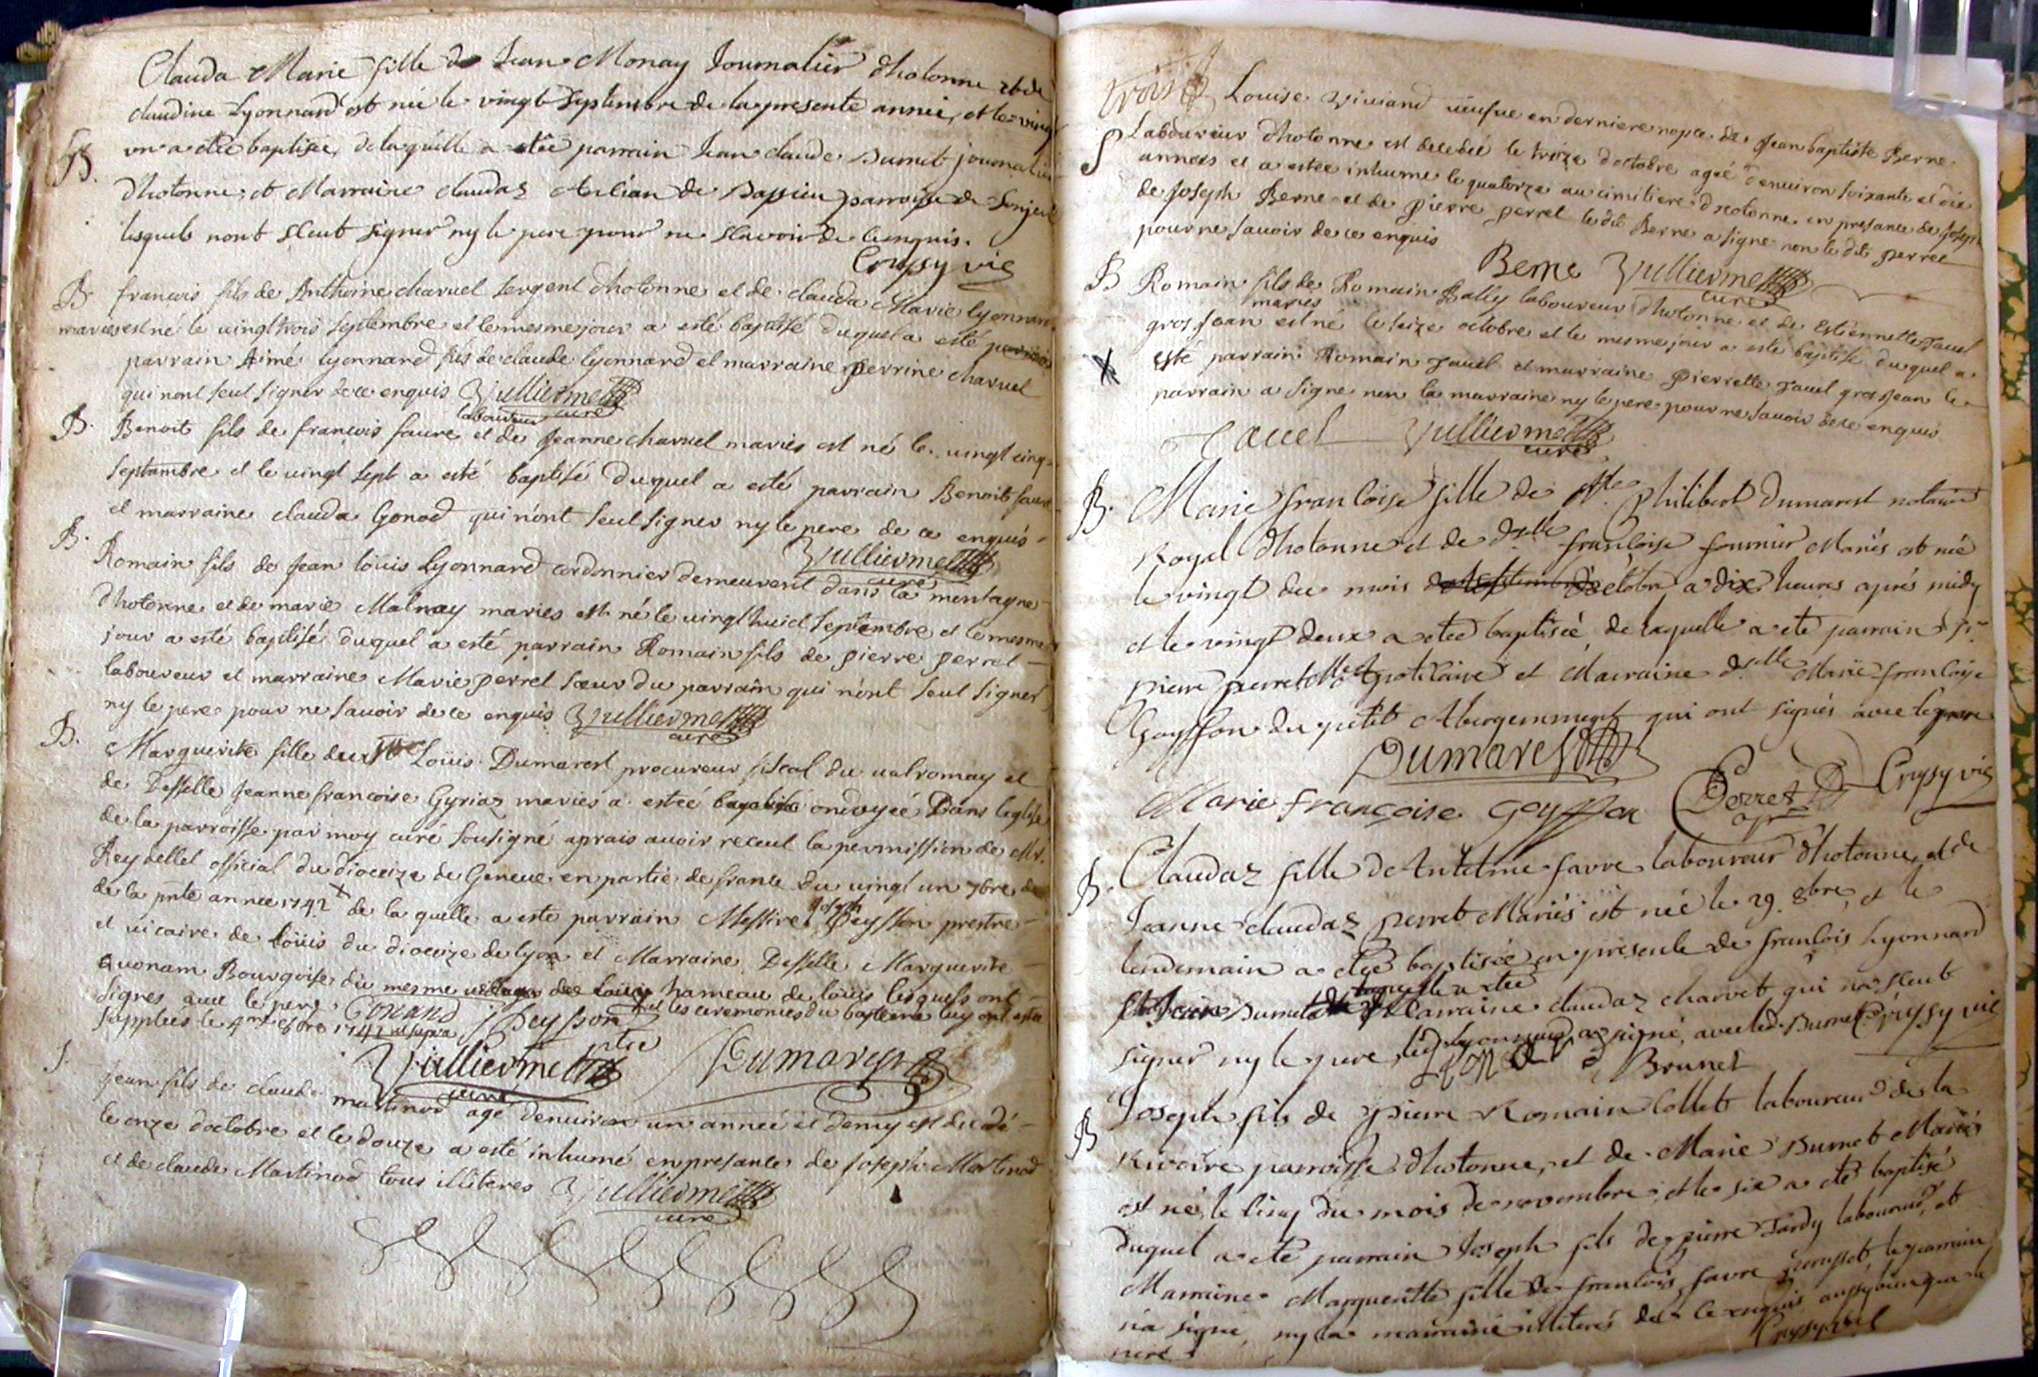 Clauda Marie fille de Jean Monay Journalier dhotonne et de
claudine Lyonnard est née le vingt Septembre de la presente année, et le vingt
B. un a eteé baptisée, de laquelle a eteé parrain Jean claude Dumet journalier
dhotonne, et Marraine claudaz de paroisse de Sonjeu
lesquels nont sceut signer ny le pere pour ne scavoir de ce enquis.
Crupy vic
B. francois fils de Anthoine charvel sergent dhotonne et de clauda Marie lyonnard
mariés est né le vingt trois septembre et le mesme jour a esté baptisé duquel a esté
parrain Aimé lyonnard fils de claude lyonnard et marraine perrine charvel
qui nont seut signer de ce enquis Vulliermet
curé
laboureur
B. Benoit fils de francois faure et de Jeanne charvel mariés est né le vingt cinq
septambre et le vingt sept a esté baptisé duquel a esté parrain Benoit faure
et marraine clauda Gonod qui nont seut signer ny le pere de ce enquis
Vulliermet
curé
B. Romain fils de Jean loüis Lyonnard cordonnier demeurent dans la montagne
dhotonne et de marie Malnay mariés est né le vingt huict septembre et le mesme
jour a esté baptisé duquel a esté parrain Romain fils de pierre perret
laboureur et marraine Marie perret sœur du parrain qui nont seut signer
ny le pere pour ne savoir de ce enquis Vulliermet
curé
B. Marguerite fille de Loüis Dumarest procureur fiscal du valromay et
de Deselle Jeanne francoise Gyriaz mariés a estée ondoyeé Dans leglise
de la parroisse par moy curé sousigné aprais avoir receut la permission de Mr.
Reydellet official du dioceze de Geneve en partie de france du vingt un 7bre de
de la pnte anneé 1742 de la quelle a esté parrain Messire Joseph Peysson prestre
et vicaire de loüis du dioceze de lyon et Marraine Deselle Marguerite
quonam Bourgoise du mesme hameau de loüis lesquels ont
signes avec le pere, et les ceremonies du bapteme luy ont esté
supplees le 4me 8bre 1742 Conand Peysson
ptre
Vulliermet Dumarest
curé
S. Jean fils de claude martinod agé denviron un anneé et demy est decedé
le onze doctobre et le douze a esté inhumé en presance de Joseph Martinod
et de claude Martinod tous illiteres Vulliermet
curé
Louise Viviand veufve en derniere nopce de Jean baptiste Berne
S Laboureur dhotonne est decedeé le treize doctobre ageé denviron soixante et dix
anneés et a estée inhumé le quatorze au cimitiere dhotonne en presance de Joseph
de Joseph Berne et de pierre perret le dit Berne a signe non le dit perret
pour ne savoir de ce enquis Berne Vulliermet
curé
B Romain fils de Romain Bally laboureur dhotonne et de Estiennette Jauel
mariés
gros Jean est né le seize octobre et le mesme jour a esté baptisé duquel a
esté parrain Romain Jauel et marraine pierrette Jauel gros Jean le
parrain a signe non la marraine ny le pere pour ne savoir de ce enquis
Jauel Vulliermet
curé
B. Marie francoise fille de Me. philibert Dumarest notaire
Royal dhotonne et de dlle francoise fournier Mariés est née
le vingt du mois doctobre a dix heures apres midy
et le vingt deux a eteé baptiseé de laquelle a ete parrain sr.
pierre perret Me Apoticaire et Marraine dlle Marie francoise
Goyffon du petit Abergemment qui ont signés avec le pere
Dumarest
Marie françoise Goyffon Perret Crupy vic
ap
B. Claudaz fille de Antelme favre laboureur dhotonne, et de
Jeanne claudaz perret Mariés est née le 29. 8bre, et le
lendemain a eteé baptiseé en presence de francois Lyonnard
laquelle a eteé
Marraine claudaz charvet qui na sceut
signer ny le pere, led. Lyonnard a signé, avec led. Dumet Crupy vic
Brunet
B Joseph fils de pierre Romain Collet laboureur de la
Rivoire paroisse dhotonne, et de Marie Dumet Mariés
est né, le cinq du mois de novembre, et le six a eté baptisé
duquel a eté parrain Joseph fils de pierre Tardy laboureur, et
Marraine Marguerite fille de francois favre le parrain
na signé, ny la marraine illiterés de ce enquis
pere